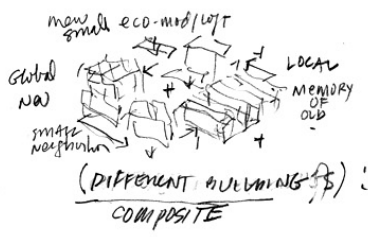 new
small eco-mod/loft
Global
New
LOCAL
MEMORY
OF
OLD
SMALL
(DIFFERENT BUILDINGS):
COMPOSITE